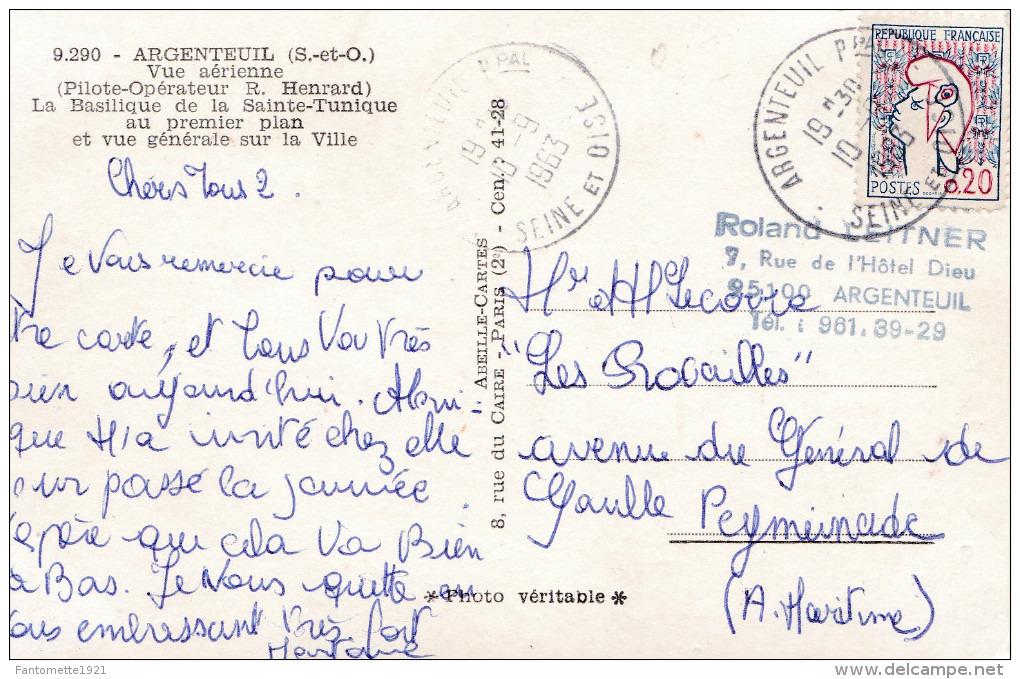 9.290 - ARGENTEUIL (S.-et-O.)
Vue aérienne
(Pilote-Opérateur R. Henrard)
La Basilique de la Sainte-Tunique
au premier plan
et vue générale sur la Ville
Chéris Tous 2.
Je Vous remercie pour
tre carte, et Tous Va très
bien aujourd'hui.
que m'a invité chez elle
pour passé la journée.
espère que cela Va Bien
a Bas. Je Vous quitte en
ous embrassant très fort
ABEILLE-CARTES
8, rue du CAIRE - PARIS (2e) - Cen. 41-28
*Photo véritable*
ARGENTEUIL PPAL
19H30
10-9
1963
SEINE ET OISE
ARGENTEUIL PPAL
19H30
10-9
1963
SEINE ET OISE
REPUBLIQUE FRANÇAISE
POSTES 0,20
Roland LEITNER
7, Rue de l'Hôtel Dieu
95100 ARGENTEUIL
Tél. : 961.39-29
Mr et M Lecorre
"Les Rocailles"
avenue du Général de
Gaulle Peymeinade
(A. Maritime)
Fantomette1921